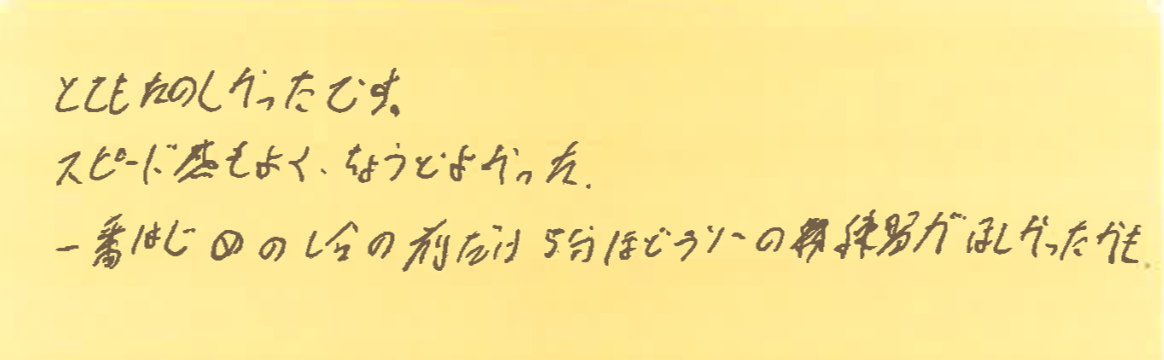 とてもたのしかったです。
スピード感もよく、ちょうどよかった.
一番はじめのし合の前だけ5分ほどラリーの練習がほしかったかも.